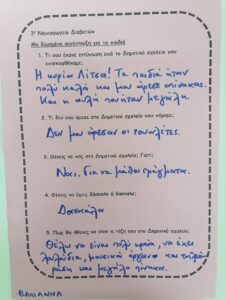 3º Νηπιαγωγείο Διαβατών
Με δομημένη συνέντευξη για τα παιδιά
1. Τι σου έκανε εντύπωση από το Δημοτικό σχολείο που
επισκεφθήκαμε;
Η κυρία Λίτσα! Τα παιδιά ήταν
πολύ καλά και μου άρεσε ο πίνακας.
Και η αυλή που ήταν μεγάλη.
2. Τι δεν σου άρεσε στο Δημοτικό σχολείο που πήγαμε;
Δεν μου άρεσαν οι τουαλέτες.
3. Θέλεις να πας στο Δημοτικό σχολείο; Γιατί;
Ναι. για να μάθω γράμματα.
4. Θέλεις να έχεις δάσκαλο ή δασκάλα;
Δασκάλα
5. Πώς θα ήθελες να είναι η τάξη σου στο Δημοτικό σχολείο;
Θέλω να είναι πολύ ωραία, να έχει
λουλούδια, μουσικά όργανα και τηλεό
ραση και μεγάλο πίνακα.